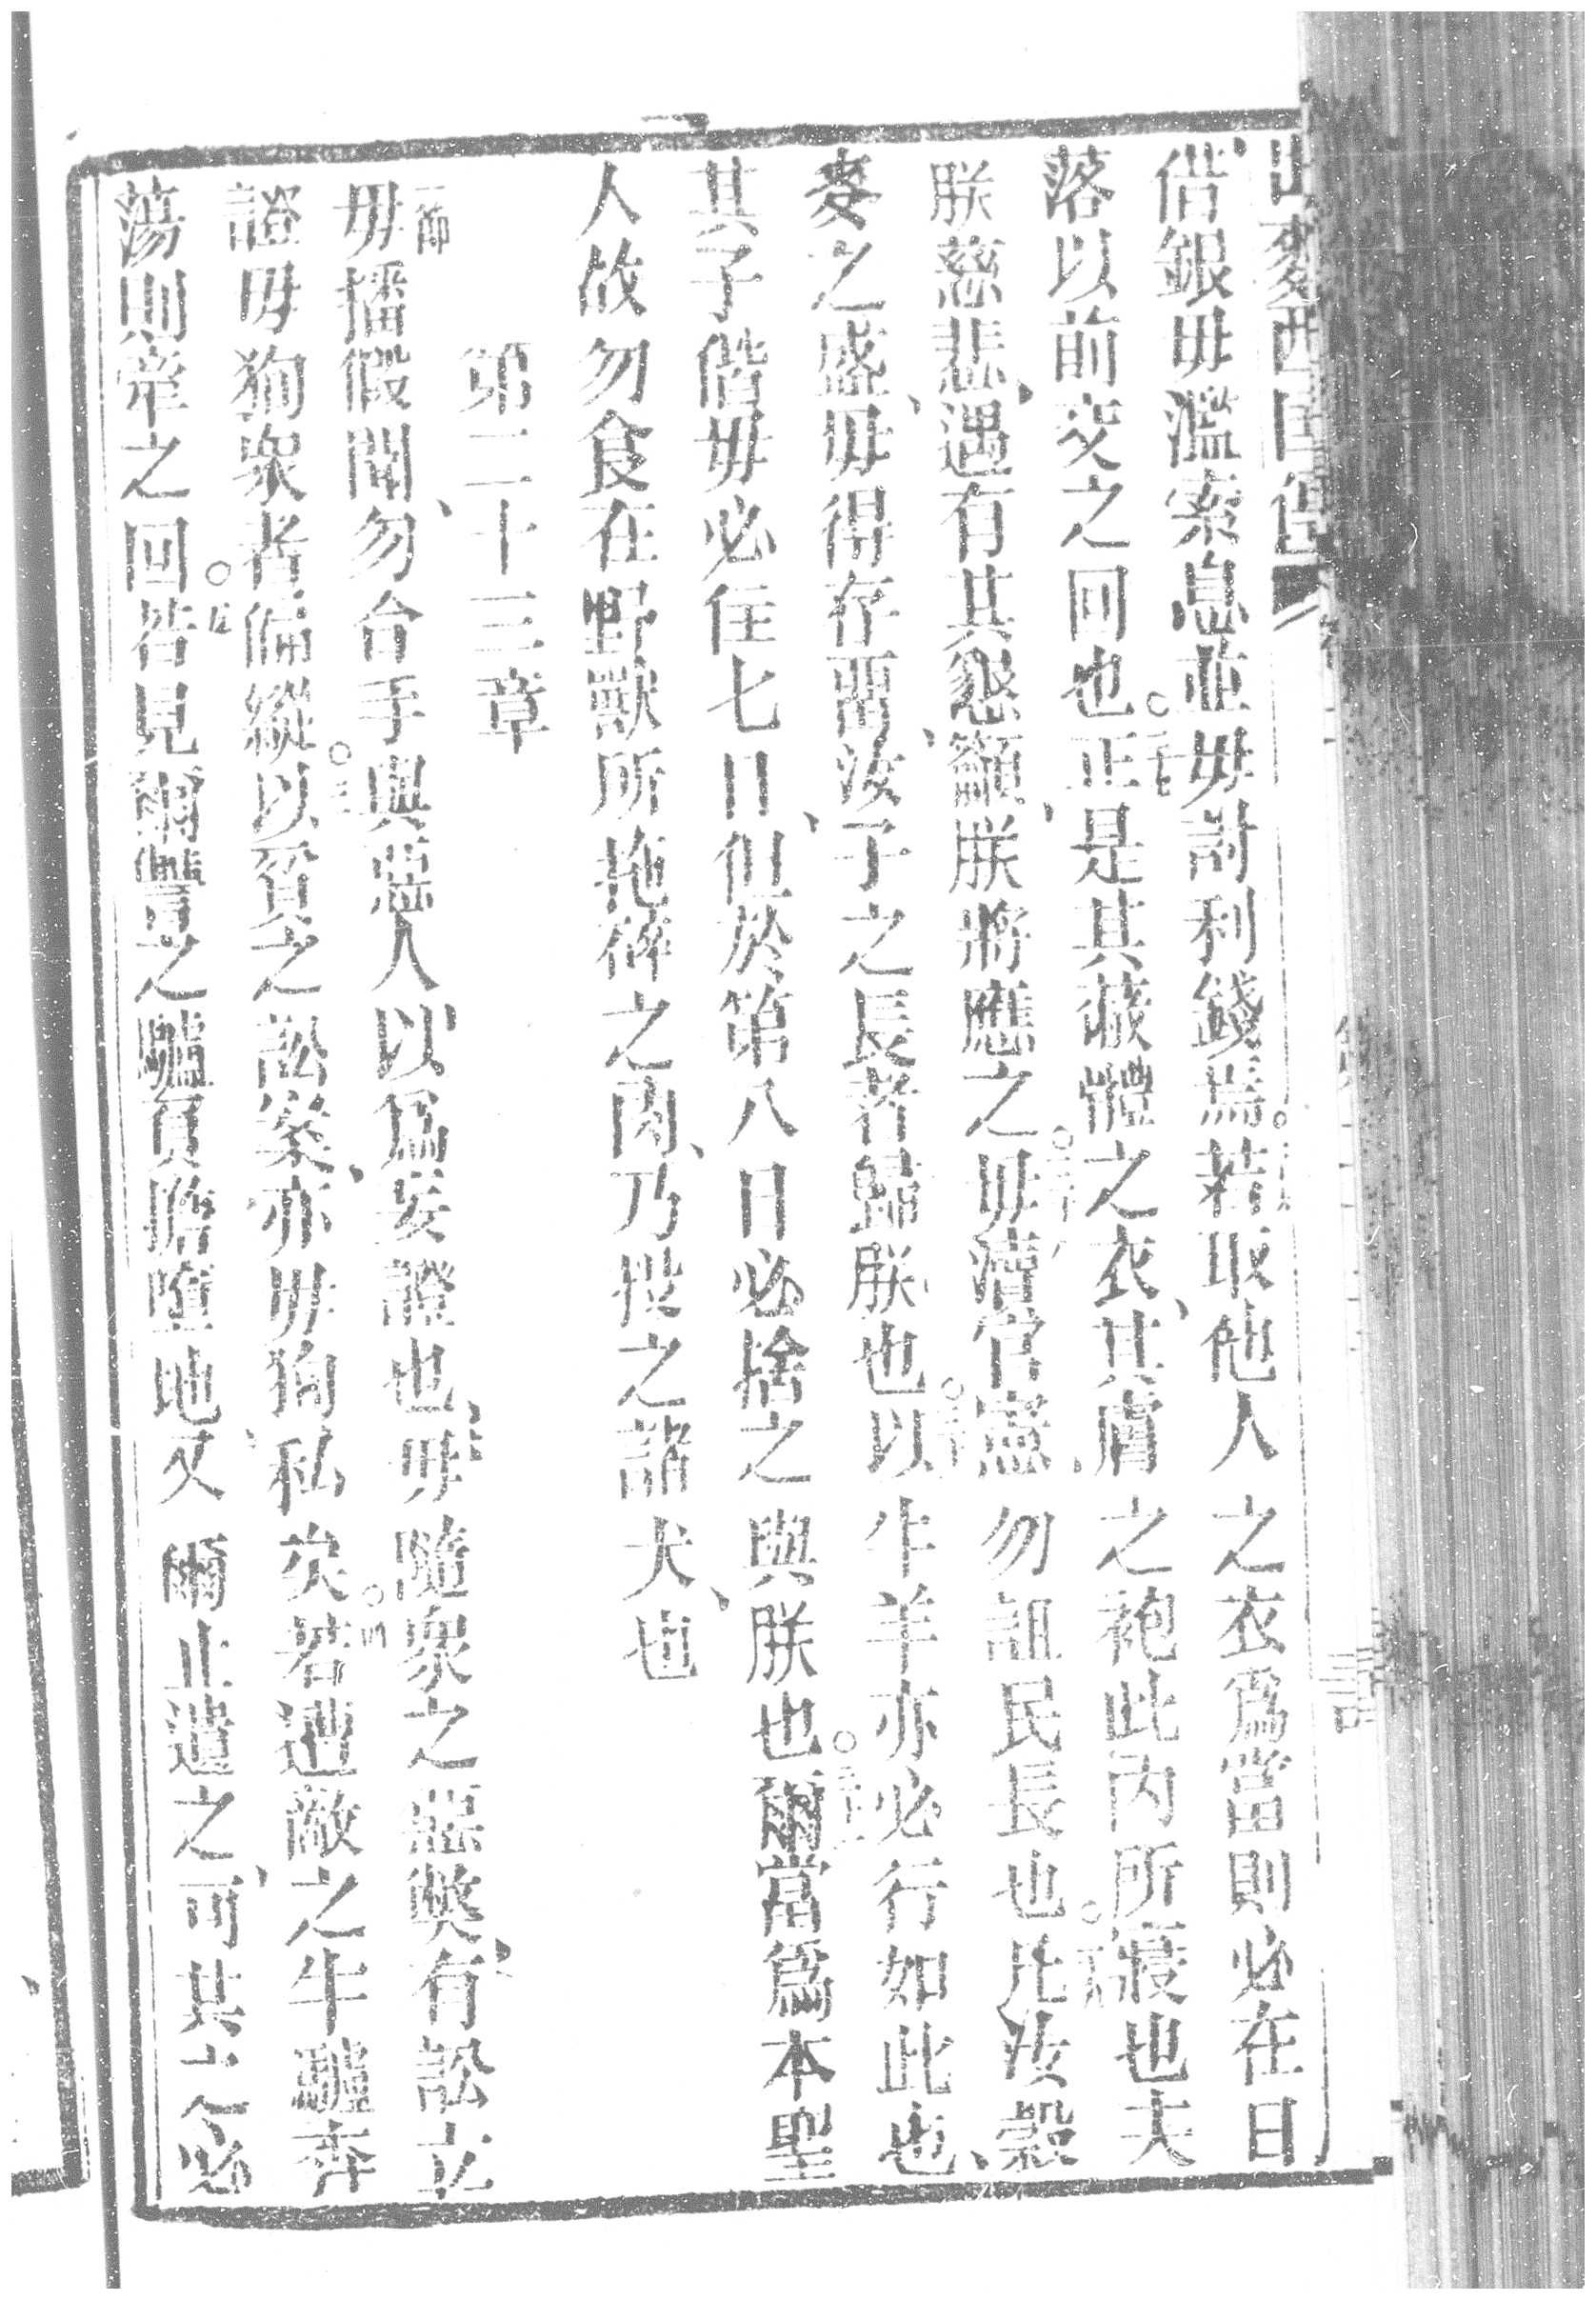 借銀毋濫索息並毋討利錢焉○若取他人之衣爲當則必在日
落以前交之回也○二十七正是其蔽體之衣其膚之袍此內所寢也夫
朕慈悲遇有其懇籲朕將應之○毋瀆官憲勿詛民長也○凡汝穀
麥之盛毋得存畱汝子之長者歸朕也○以牛羊亦必行如此也
其子偕毋必住七日但於第八日必捨之與朕也○爾當爲本聖
人故勿食在野獸所拖碎之肉乃投之諸犬也
第二十三章
一節毋播假聞勿合手與惡人以爲妄證也毋隨衆之惡獘有訟立
證毋狥衆者偏縱○三以貧之訟案亦毋狥私矣○四若遭敵之牛驢奔
蕩則牽之回○五若見爾讐之驢負擔墮地又爾止遣之可共之必